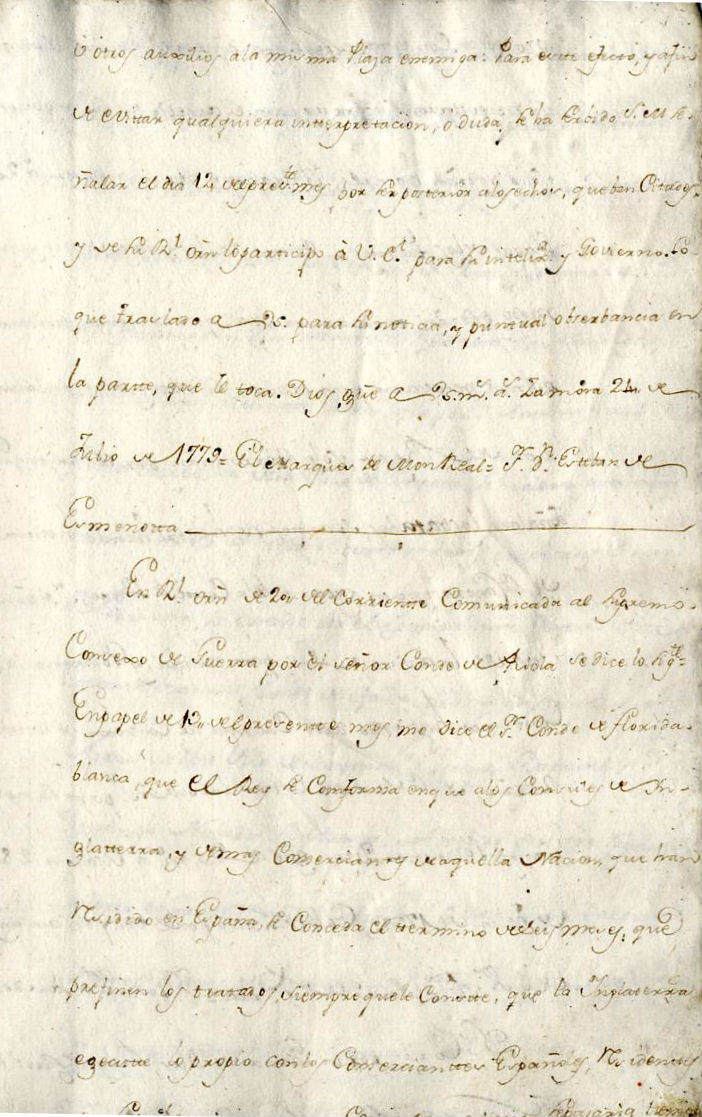 ú otros auxilios ala misma Plaza enemiga: Para este efecto, y afin
de evittar qualquiera intterpretacion, o duda, se ha serbido S. M. se-
ñalar el dia 12 del pres.te mes por ser posterior alos echos, que ban Citados,
y de su R.l orñ lo participo à V. E.a para su intelig.a y Govierno. Lo
que traslado a Vs. para su noticia, y puntual obserbancia en
la partte, que le toca. Dios gũe a Vs. m.s a.s Zamora 24 de
Julio de 1779= El Marques de MonReal= S.r D.n Esteban de
Esmenotta
En R.l orñ de 20 del Corriente Comunicada al supremo
Consexo de Guerra por el señor Conde de Ricla se dice lo sig.te=
En papel de 12,, del presentte mes, me dice el S.r Conde de florida-
blanca, que el Rey se Conforma en que alos Consules de In-
glatterra, y demas Comerciantes de aquella Nacion, que han
Residido en España, se Conceda el ttermino de seis meses, que
prefinen los tratados, siempre que le Constte, que la Inglaterra
egecutte lo propio con los Comerciantes Españoles, Residentes